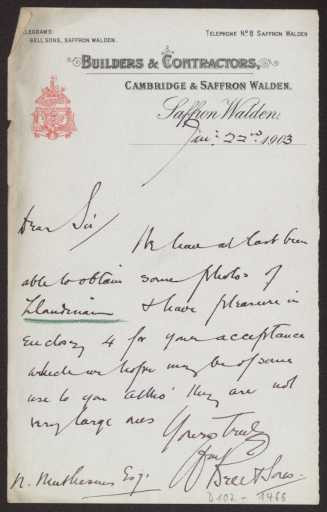 LEGRAMS:
BELL SONS, SAFFRON WALDEN.
TELEPHONE Nº 8 SAFFRON WALDEN
BUILDERS & CONTRACTORS,
CAMBRIDGE & SAFFRON WALDEN.
Saffron Walden,
22nd 1903
Dear Sir/
We have at last been
able to obtain some photos of
& have pleasure in
enclosg 4 for your acceptance
which we hope may be of some
use to you altho' they are not
very large ones
Yours truly
Wm Bell & Sons.
H. Muthesius Esq.
D 102 - 1466